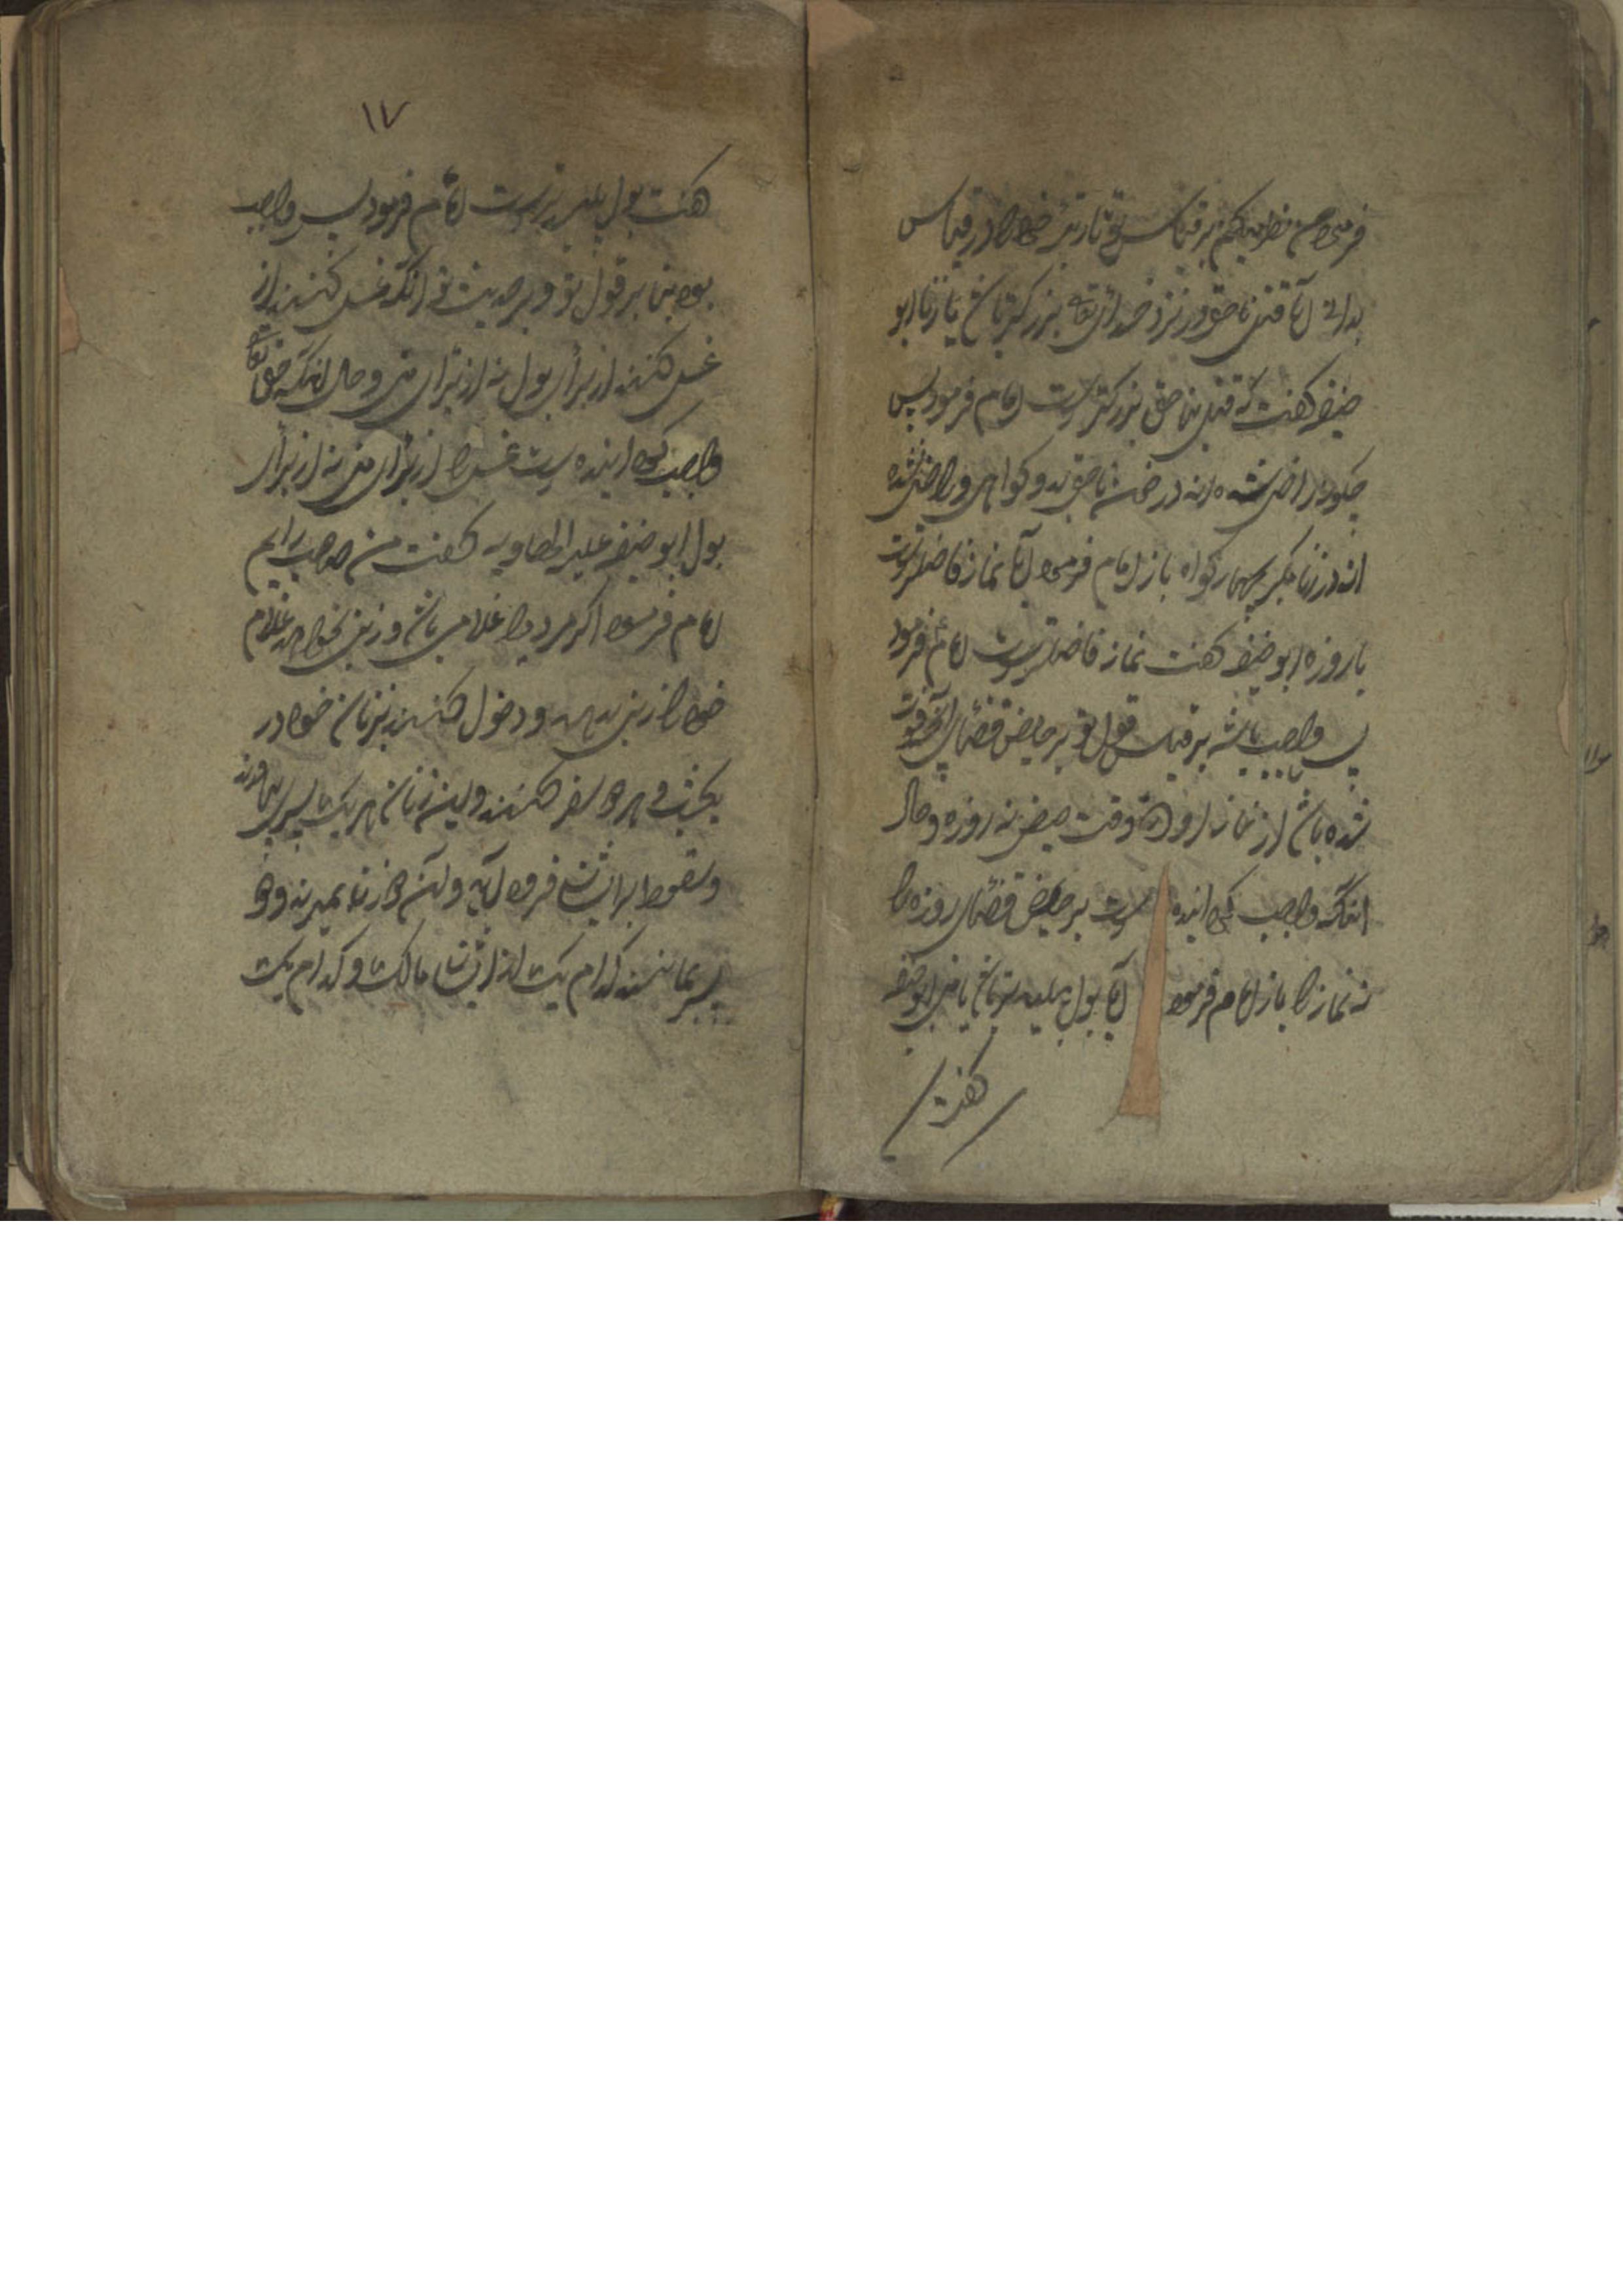 فرمود من نظر میکنم بر قیاس تو تا رتبه خود را در قیاس
بدانے آیا قتل ناحق در نزد خدای تعا بزرگتر باشد یا زنا ابو
حنیفه کفت که قتل بناحق بزرکتر است امام فرمود پس
چکونه راضی شده اند در خون ناحق بدو کواهی و راضی نشده
اند در زنا مکر بچهار کواه باز امام فرمود آیا نماز فاضلتر است
یا روزه ابو حنیفه کفت نماز فاضلتر است امام فرمود
پس واجب باشد بر قیاس قول تو بر حایض قضای آنچه فوت
شده باشد از نماز از او در وقت حیض نه روزه و حال
آنکه واجب کردانیده است بر حایض قضای روزه را
نه نماز را باز امام فرمود آیا بول پلیدتر باشد یا منی ابو حنیفه
کفت
۱۷
کفت بول پلیدتر است امام فرمود پس واجب
بود بنا بر قول تو و بر حدیث تو آنکه غسل کنند از
غسل کنند از برای بول نه از برای منی و حال آنکه حق تعا
واجب کردانیده است غسل را از برای منی نه از برای
بول ابو حنیفه علیه الهاویه کفت من صاحب رایم
امام فرمود اکر مردی را غلامی باشد و زنی بخواهد و غلام
خود را زنی بدهد و دخول کنند بزنان خود در
یکشب و هر دو سفر کنند و این زنان هر یک پسری بیاورند
و سقف بر ایشان فرود آید و آن دو زن بمیرند و دو
پسر بمانند کدام یک از ایشان مالک و کدام یک